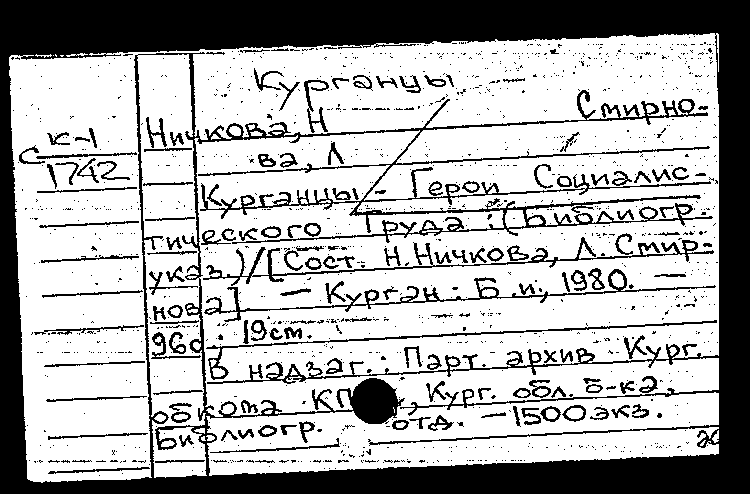 Курганцы
Ничкова, Н Смирно-
С К-1
1742
ва, Л
Курганцы - Герои Социалис-
тического Труда : (Библиогр.
указ.) / [Сост. Н. Ничкова, Л. Смир-
нова] — Курган : Б. и., 1980. —
96с ; 19см.
В надзаг. : Парт. архив Кург.
обкома КП , Кург. обл. б-ка,
Библиогр. отд. — 1500экз.